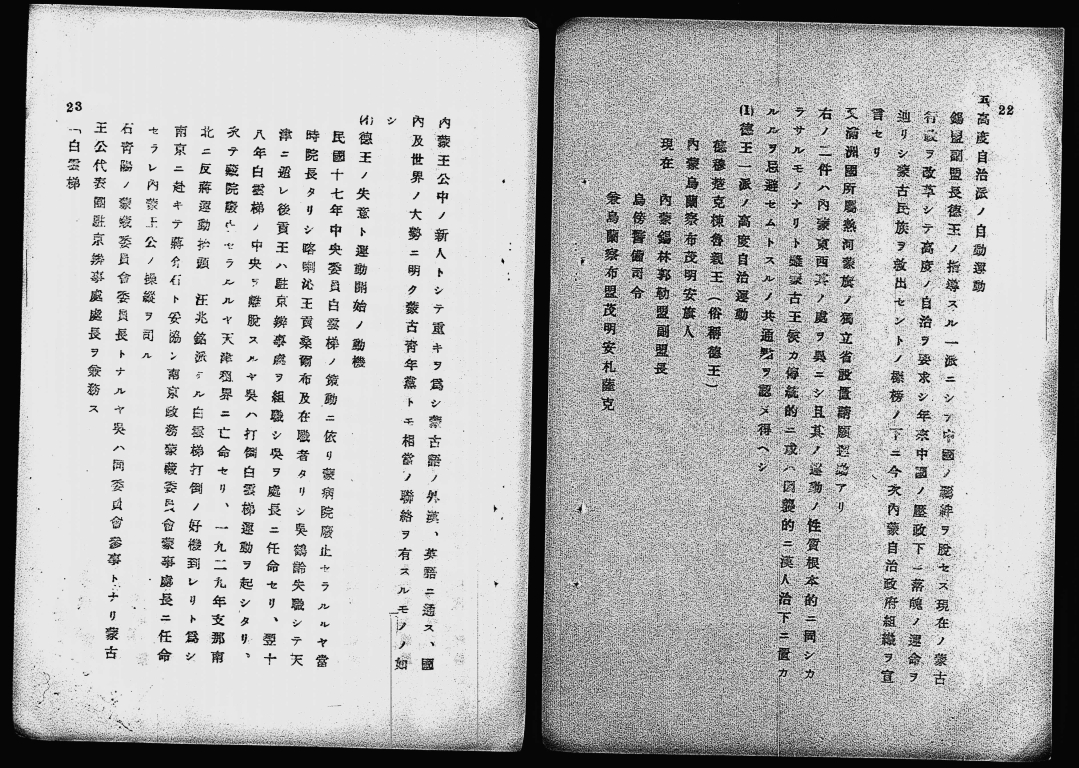 22
五、高度自治派ノ自動運動
錫盟副盟長德王ノ指導スル一派ニシテ中國ノ羈絆ヲ脫セス現在ノ蒙古
行政ヲ改革シテ高度ノ自治ヲ要求シ年來中國ノ壓政下ニ落魄ノ運命ヲ
辿リシ蒙古民族ヲ救出セントノ標榜ノ下ニ今次內蒙自治政府組織ヲ宣
言セリ
又滿洲國所屬熱河蒙旗ノ獨立省設置請願運動アリ
右ノ二件ハ內蒙東西其ノ處ヲ異ニシ且其ノ運動ノ性質根本的ニ同シカ
ラサルモノナリト雖蒙古王侯カ傳統的ニ或ハ因襲的ニ漢人治下ニ置カ
ルルヲ忌避セムトスルノ共通點ヲ認メ得ヘシ
(1)德王一派ノ高度自治運動
德穆楚克棟魯親王(俗稱德王)
內蒙烏蘭察布茂明安旗人
現在 內蒙錫林郭勒盟副盟長
烏滂警備司令
兼烏蘭察布盟茂明安札薩克
內蒙王公中ノ新人トシテ重キヲ爲シ蒙古語ノ外漢、英語ニ通ス、國
內及世界ノ大勢ニ明ク蒙古靑年黨トモ相當ノ聯絡ヲ有スルモノノ如
シ
(イ)德王ノ失意ト運動開始ノ動機
民國十七年中央委員白雲梯ノ策動ニ依リ蒙病院廢止セラルルヤ當
時院長タリシ喀喇沁王貢桑爾布及在職者タリシ吳鶴齡失職シテ天
津ニ遁レ後貢王ハ駐京辨事處ヲ組職シ吳ヲ處長ニ任命セリ、翌十
八年白雲梯ノ中央ヲ離脫スルヤ吳ハ打倒白雲梯運動ヲ起シタリ、
次テ藏院廢止セラルルヤ天津租界ニ亡命セリ、一九二九年支那南
北ニ反蔣運動抬頭 汪兆銘派タル白雲梯打倒ノ好機到レリト爲シ
南京ニ赴キテ蔣介石ト妥協シ南京政務蒙藏委員會蒙事處長ニ任命
セラレ內蒙王公ノ操縱ヲ司ル
石靑陽ノ蒙藏委員會委員長トナルヤ吳ハ同委員會參事トナリ蒙古
王公代表團駐京辨事處處長ヲ兼務ス
「白雲梯
23